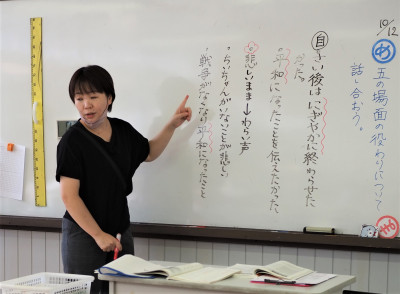 10/12
め 五の場面の役わりについて
話し合おう。
自 さい後はにぎやかに終わらせた
かった。
・平和になったことを伝えたかった、
悲しいまま→わらい声
・ちいちゃんがいないことが悲しい
・戦争がなくなり平和になったこと